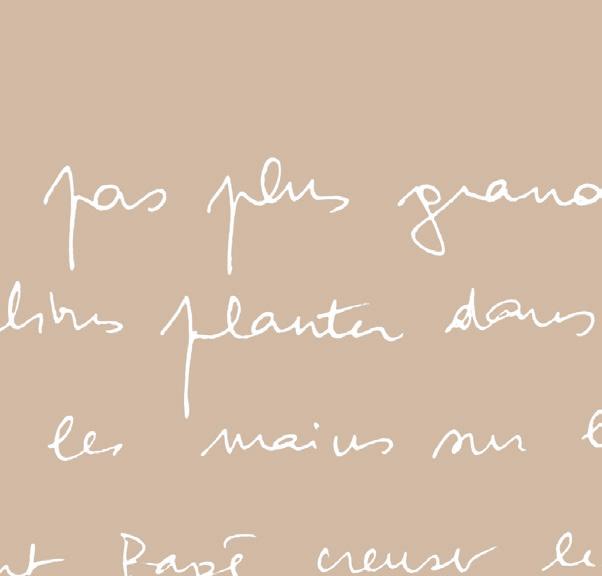 pas plus grand
libres planter dans
les mains sur l
nt Papé creuser le